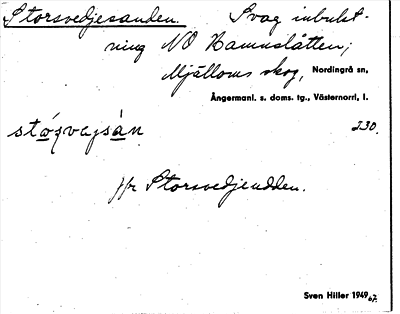 Storsvedjesanden. Svag inbukt-
ning NO Hamnslåtten;
Mjälloms skog, Nordingrå sn,
Ångermanl. s. doms. tg., Västernorrl, l.
230.
jfr Storsvedjeudden.
Sven Hiller 1949